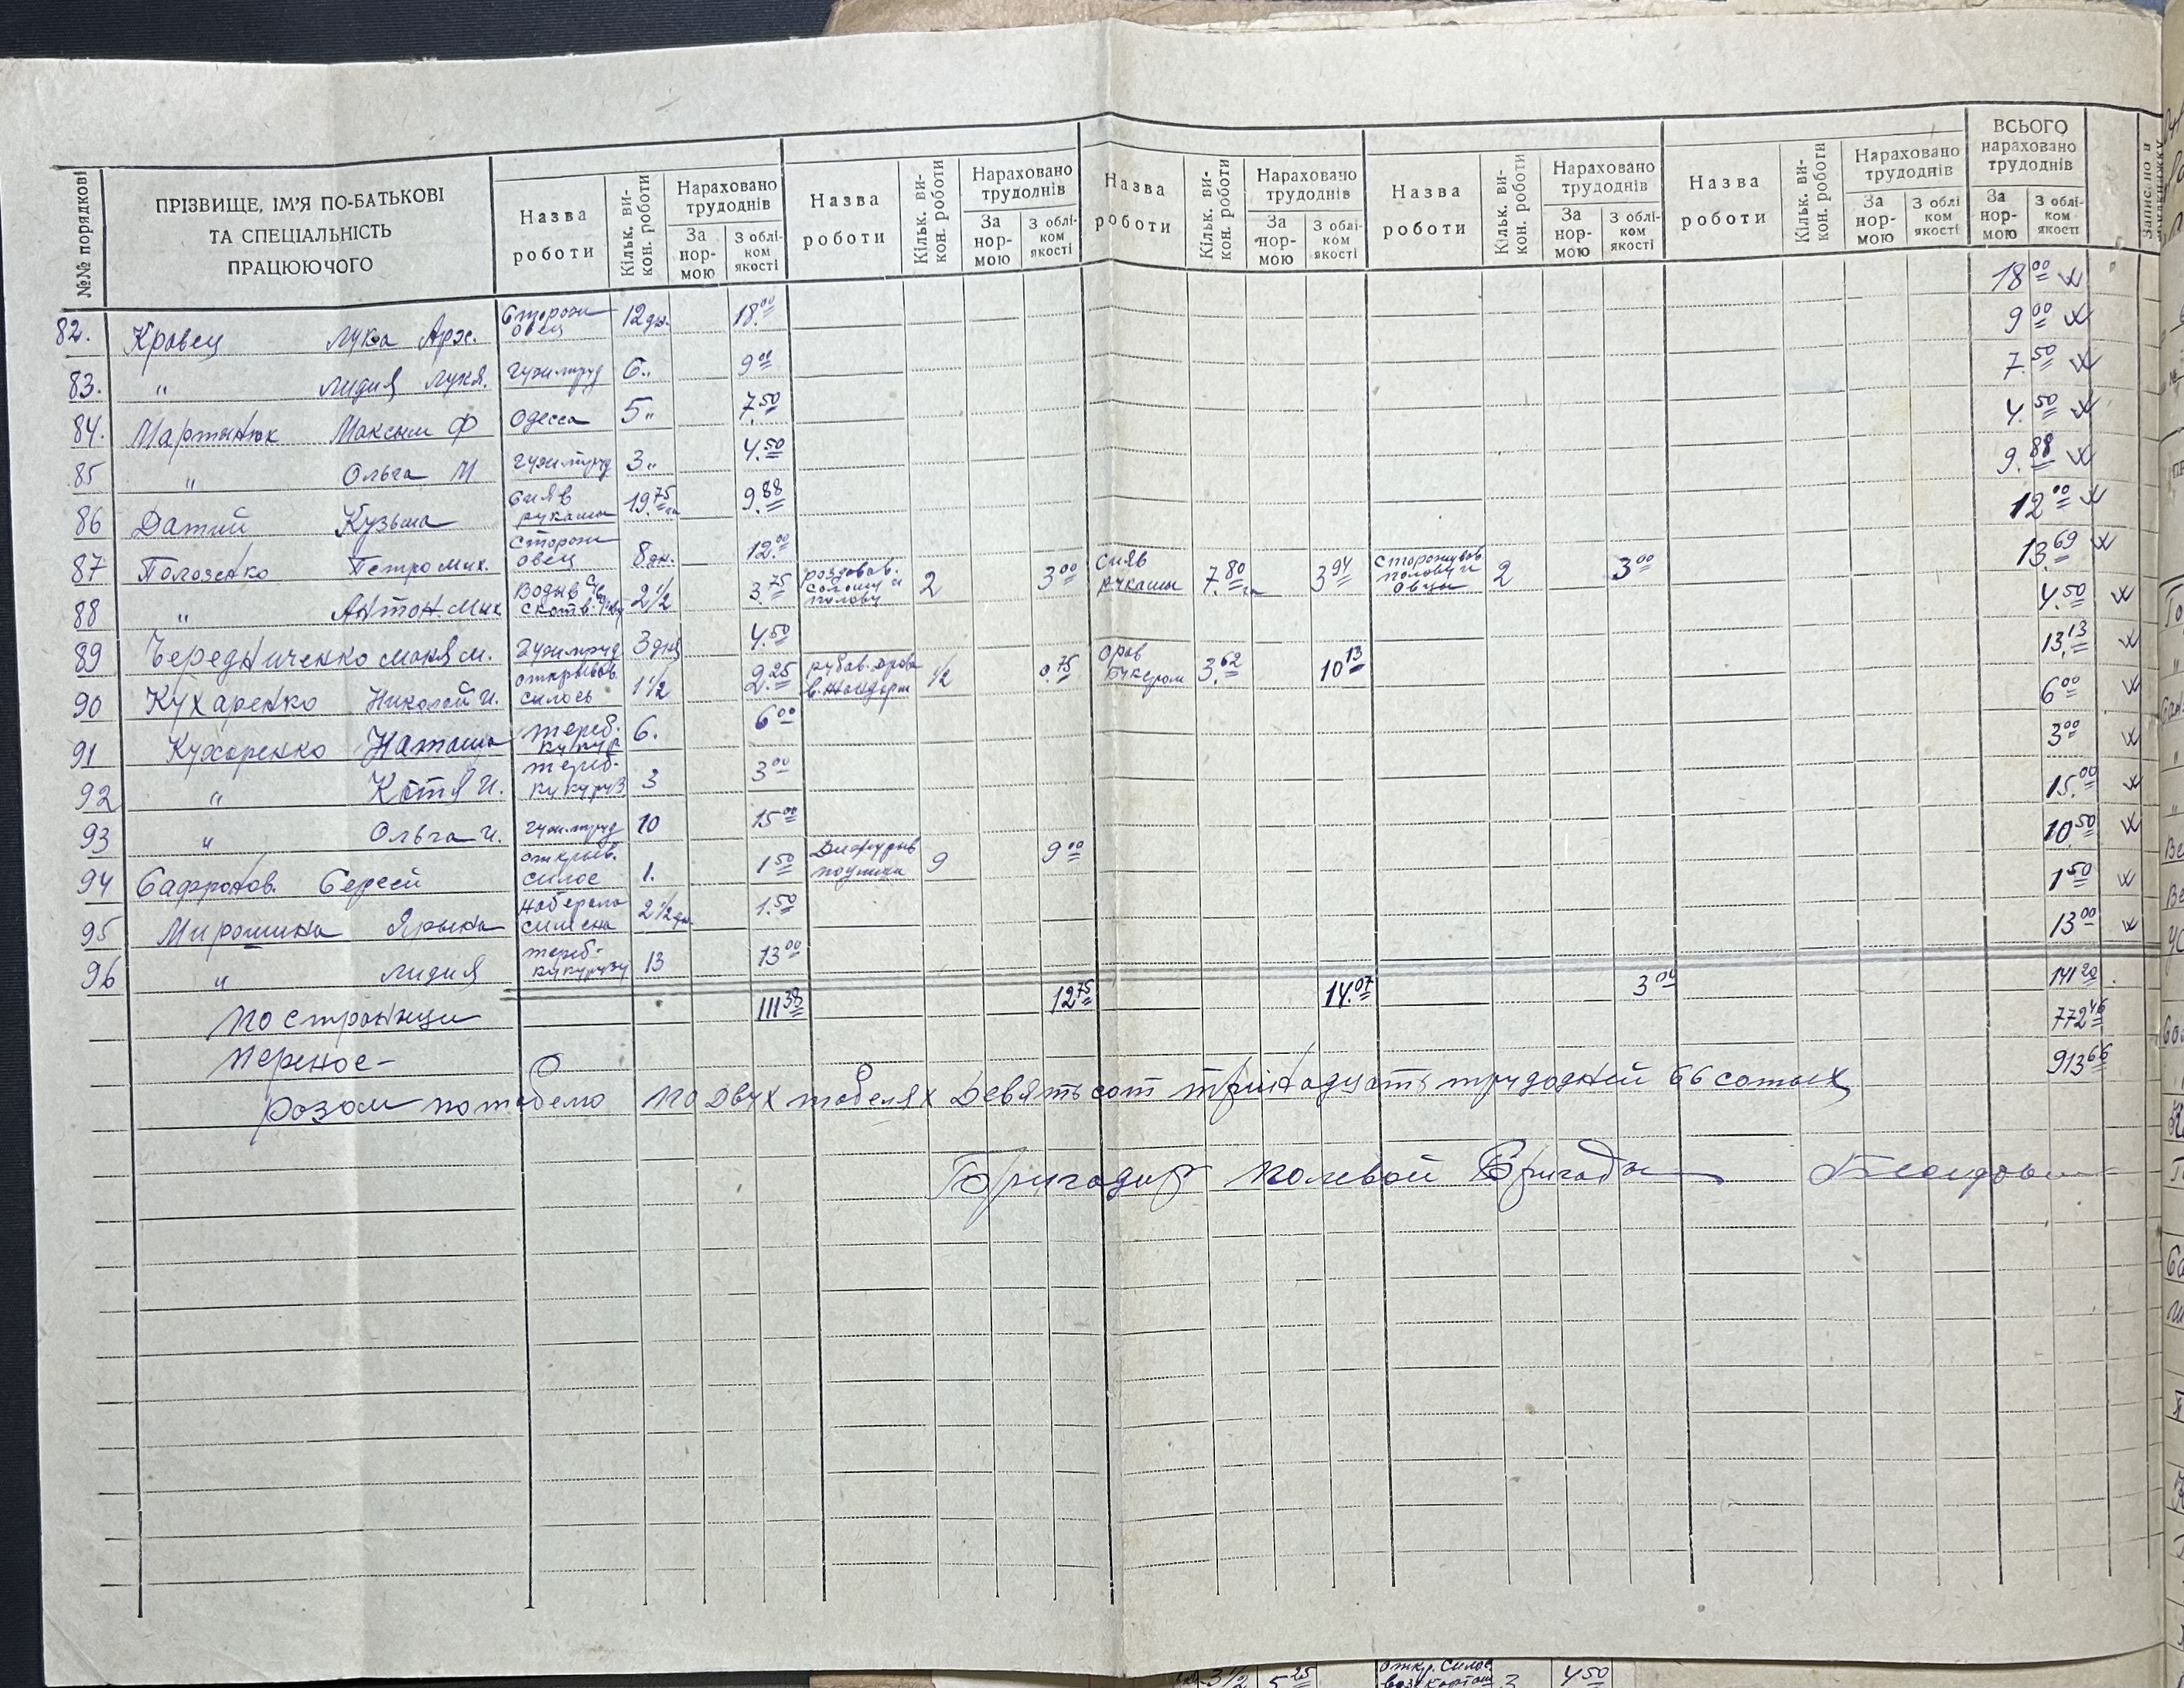 №№ порядкові ПРІЗВИЩЕ, ІМ'Я ПО-БАТЬКОВІ ТА СПЕЦІАЛЬНІСТЬ ПРАЦЮЮЧОГО
Назва роботи Кільк. ви-кон. роботи Нараховано трудоднів За нор-мою З облі-ком якості
Назва роботи Кільк. ви-кон. роботи Нараховано трудоднів За нор-мою З облі-ком якості
Назва роботи Кільк. ви-кон. роботи Нараховано трудоднів За нор-мою З облі-ком якості
Назва роботи Кільк. ви-кон. роботи Нараховано трудоднів За нор-мою З облі-ком якості
Назва роботи Кільк. ви-кон. роботи Нараховано трудоднів За нор-мою З облі-ком якості
ВСЬОГО нараховано трудоднів За нор-мою З облі-ком якості
82. Кравец Лука Арх. Сторож овец 12 дн. 18.00 18 00
83. " Лидия Лукя. 6 " 9 00 9 00
84. Мартинюк Максым Ф Одесса 5 " 7.50 7.50
85 " Ольга М 3 " 4.50 4.50
86 Датий Кузьма сияв рукамы 19.75 га 9.88 9.88
87 Полозенко Петро Мих. Сторож овец 8 дн. 12.00 12 00
88 " Антон Мих Водыв 2 1/2 3.75 роздовав. солому и полову 2 3 00 сияв рукамы 7.80 га 3 94 Сторожував полову и овцы 2 3 00 13.69
89 Чередниченко М. 3 дня 4.50 4.50
90 Кухаренко Николай И. открывав силось 1 1/2 2.25 рубав. дрова в. жандарм 1/2 0.75 орав Букером 3.62 10 13 13.13
91 Кухоренко Наташа тереб. кукур 6. 6 00 6 00
92 " Котя И. тереб. кукуруз 3 3 00 3 00
93 " Ольга И. 10 15 00 15.00
94 Сафронов. Сергей открыв. силос 1. 1 50 9 9 00 10.50
95 Мирошина Ярына наберала симена 2 1/2 дн. 1.50 1 50
96 " Лидия тереб. кукурузу 13 13 00 13 00
По строници 111 38 12 75 14.07 3 00 141 20
Перенос- 772 46
Розом по табелю по двух табелях Девятьсот тринадцать трудодней 66 сотых 913 66
Бригадир полевой Бригады
3 1/2 5 25 откр. Силос 3 4 50